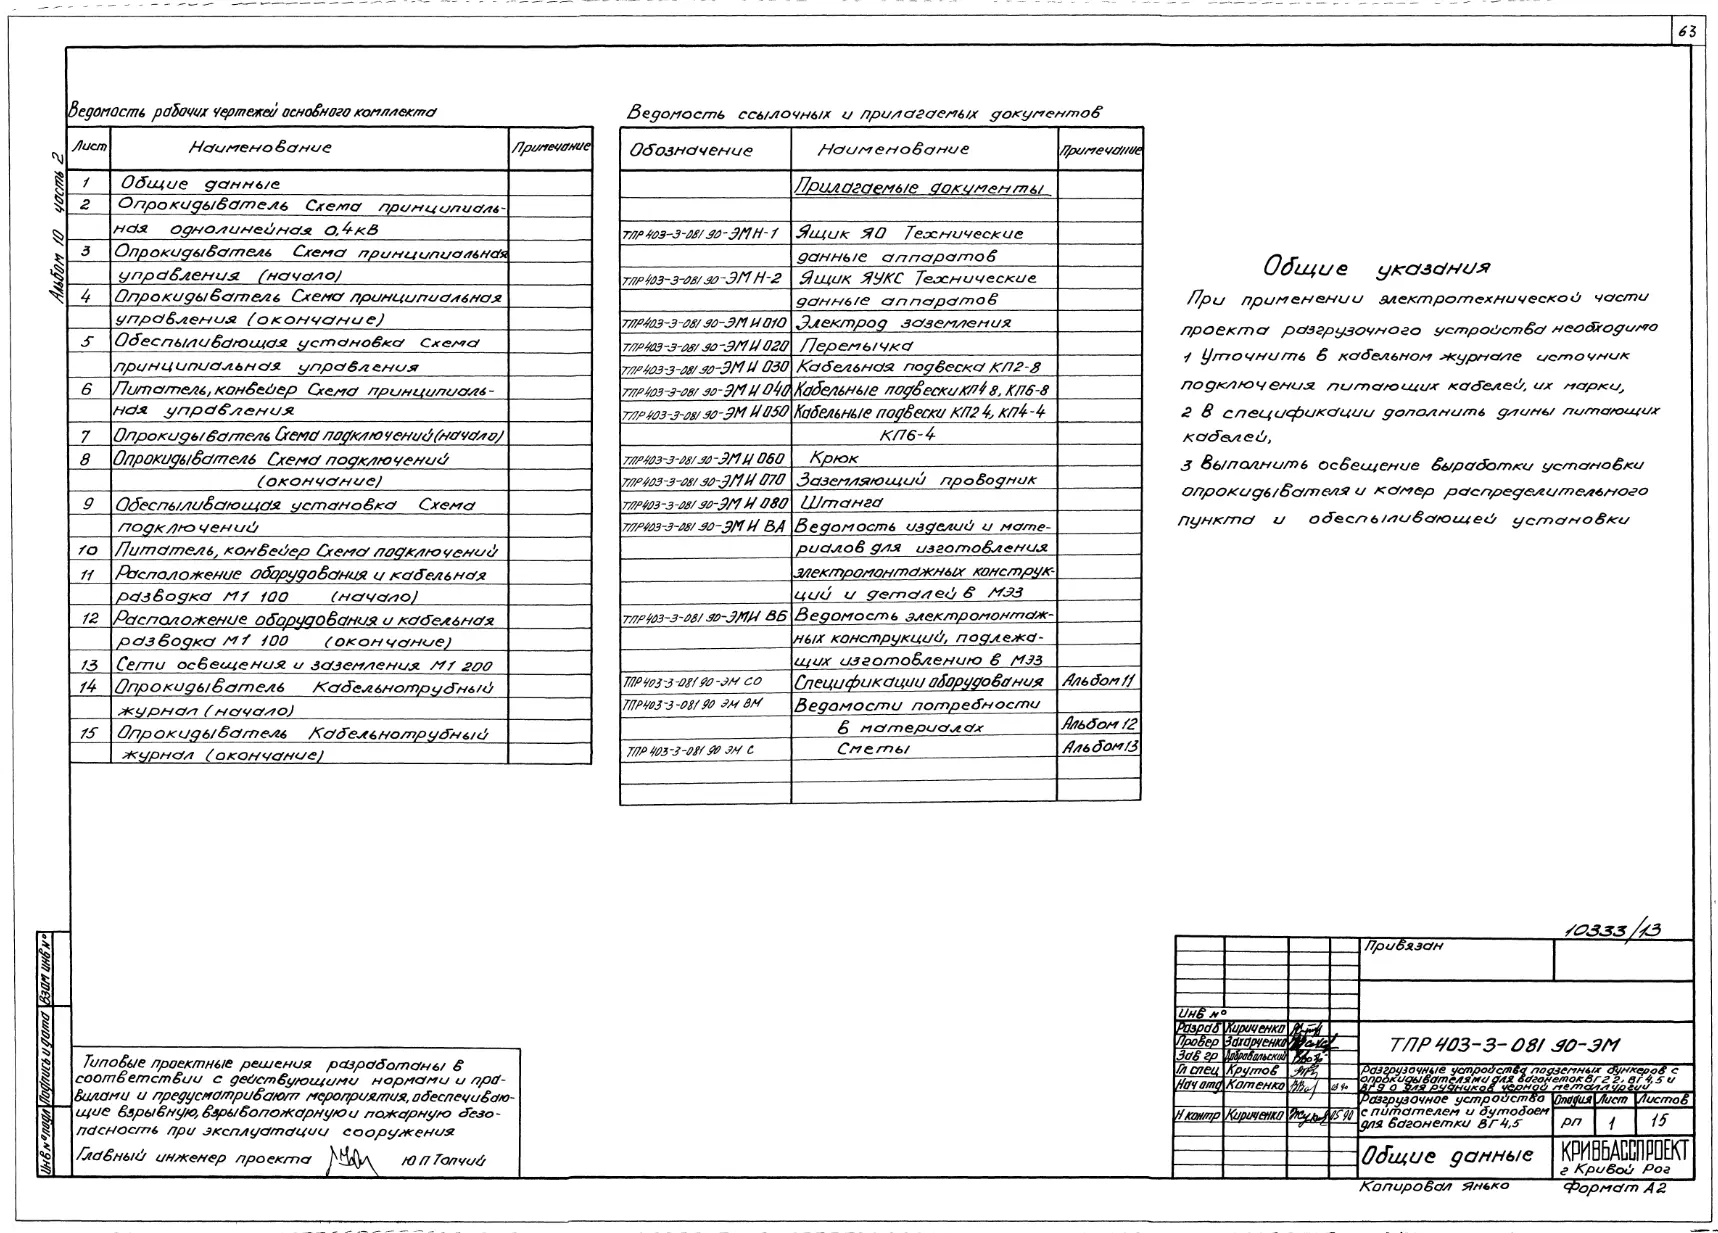 63
Альбом 10 часть 2
Ведомость рабочих чертежей основного комплекта
Лист Наименование Примечание
1 Общие данные
2 Опрокидыватель Схема принципиаль-
ная однолинейная 0,4кВ
3 Опрокидыватель Схема принципиальная
управления (начало)
4 Опрокидыватель Схема принципиальная
управления (окончание)
5 Обеспыливающая установка Схема
принципиальная управления
6 Питатель, конвейер Схема принципиаль-
ная управления
7 Опрокидыватель Схема подключений (начало)
8 Опрокидыватель Схема подключений
(окончание)
9 Обеспыливающая установка Схема
подключений
10 Питатель, конвейер Схема подключений
11 Расположение оборудования и кабельная
разводка М1 100 (начало)
12 Расположение оборудования и кабельная
разводка М1 100 (окончание)
13 Сети освещения и заземления М1 200
14 Опрокидыватель Кабельнотрубный
журнал (начало)
15 Опрокидыватель Кабельнотрубный
журнал (окончание)
Ведомость ссылочных и прилагаемых документов
Обозначение Наименование Примечание
Прилагаемые документы
ТПР 403-3-081 90-ЭМН-1 Ящик ЯО Технические
данные аппаратов
ТПР 403-3-081 90-ЭМН-2 Ящик ЯУКС Технические
данные аппаратов
ТПР 403-3-081 90-ЭМИ010 Электрод заземления
ТПР 403-3-081 90-ЭМИ020 Перемычка
ТПР 403-3-081 90-ЭМИ030 Кабельная подвеска КП2-8
ТПР 403-3-081 90-ЭМИ040 Кабельные подвески КП4 8, КП6-8
ТПР 403-3-081 90-ЭМИ050 Кабельные подвески КП2 4, КП4-4
КП6-4
ТПР 403-3-081 90-ЭМИ060 Крюк
ТПР 403-3-081 90-ЭМИ070 Заземляющий проводник
ТПР 403-3-081 90-ЭМИ080 Штанга
ТПР 403-3-081 90-ЭМИ ВА Ведомость изделий и мате-
риалов для изготовления
электромонтажных конструк-
ций и деталей в МЭЗ
ТПР 403-3-081 90-ЭМИ ВБ Ведомость электромонтаж-
ных конструкций, подлежа-
щих изготовлению в МЭЗ
ТПР 403-3-081 90-ЭМ СО Спецификации оборудования Альбом 11
ТПР 403-3-081 90 ЭМ ВМ Ведомости потребности
в материалах Альбом 12
ТПР 403-3-081 90 ЭМ С Сметы Альбом 13
Общие указания
При применении электротехнической части
проекта разгрузочного устройства необходимо
1 Уточнить в кабельном журнале источник
подключения питающих кабелей, их марки,
2 В спецификации дополнить длины питающих
кабелей,
3 Выполнить освещение выработки установки
опрокидывателя и камер распределительного
пункта и обеспыливающей установки
Взам инв №
Подпись и дата
Инв № подл
Типовые проектные решения разработаны в
соответствии с действующими нормами и пра-
вилами и предусматривают мероприятия, обеспечиваю-
щие взрывную, взрывопожарную и пожарную безо-
пасность при эксплуатации сооружения
Главный инженер проекта Ю П Топчий
10333/13
Привязан
Инв №
Разраб Кириченко
Провер Захарченко
Зав гр Добровольский
Гл спец Крутов
Нач отд Котенко
Н контр Кириченко 05 90
ТПР 403-3-081 90-ЭМ
Разгрузочные устройства подземных бункеров с
опрокидывателями для вагонеток ВГ2 2, ВГ4,5 и
ВГ9 0 для рудников черной металлургии
Разгрузочное устройство
с питателем и бутобоем
для вагонетки ВГ4,5
Стадия Лист Листов
РП 1 15
Общие данные
КРИВБАССПРОЕКТ
г Кривой Рог
Копировал Янько Формат А2